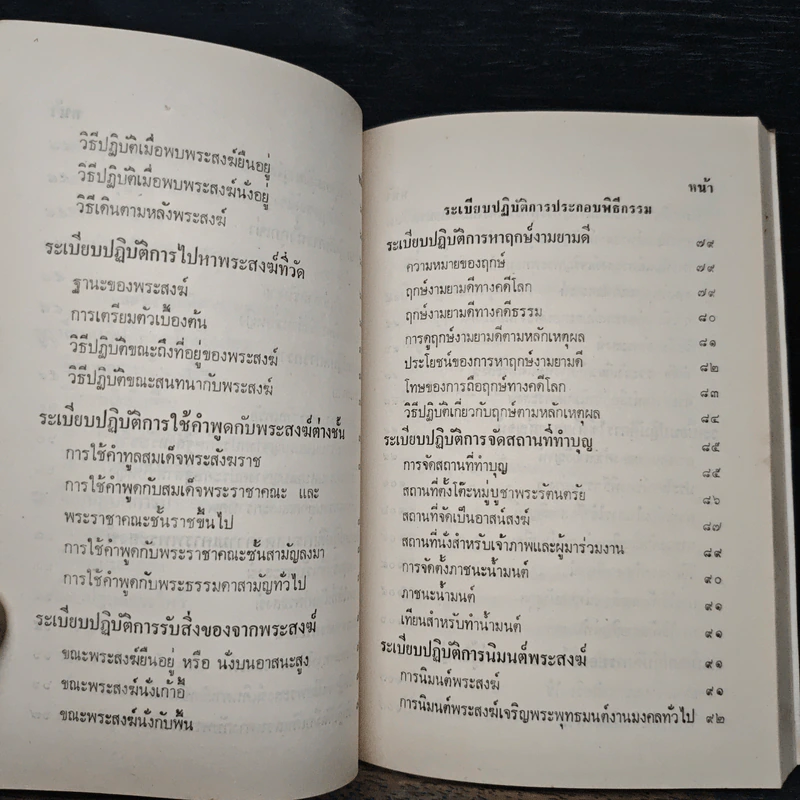 วิธีปฏิบัติเมื่อพบพระสงฆ์ยืนอยู่
วิธีปฏิบัติเมื่อพบพระสงฆ์นั่งอยู่
วิธีเดินตามหลังพระสงฆ์
ระเบียบปฏิบัติการไปหาพระสงฆ์ที่วัด
ฐานะของพระสงฆ์
การเตรียมตัวเบื้องต้น
วิธีปฏิบัติขณะถึงที่อยู่ของพระสงฆ์
วิธีปฏิบัติขณะสนทนากับพระสงฆ์
ระเบียบปฏิบัติการใช้คำพูดกับพระสงฆ์ต่างชั้น
การใช้คำทูลสมเด็จพระสังฆราช
การใช้คำพูดกับสมเด็จพระราชาคณะ และ
พระราชาคณะชั้นราชขึ้นไป
การใช้คำพูดกับพระราชาคณะชั้นสามัญลงมา
การใช้คำพูดกับพระธรรมดาสามัญทั่วไป
ระเบียบปฏิบัติการรับสิ่งของจากพระสงฆ์
ขณะพระสงฆ์ยืนอยู่ หรือ นั่งบนอาสนะสูง
ขณะพระสงฆ์นั่งเก้าอี้
ขณะพระสงฆ์นั่งกับพื้น
หน้า
ระเบียบปฏิบัติการประกอบพิธีกรรม
ระเบียบปฏิบัติการหาฤกษ์งามยามดี ๗๙
ความหมายของฤกษ์ ๗๙
ฤกษ์งามยามดีทางคดีโลก ๗๙
ฤกษ์งามยามดีทางคดีธรรม ๘๐
การดูฤกษ์งามยามดีตามหลักเหตุผล ๘๑
ประโยชน์ของการหาฤกษ์งามยามดี ๘๒
โทษของการถือฤกษ์ทางคดีโลก ๘๓
วิธีปฏิบัติเกี่ยวกับฤกษ์ตามหลักเหตุผล ๘๔
ระเบียบปฏิบัติการจัดสถานที่ทำบุญ ๘๕
การจัดสถานที่ทำบุญ ๘๕
สถานที่ตั้งโต๊ะหมู่บูชาพระรัตนตรัย ๘๖
สถานที่จัดเป็นอาสน์สงฆ์ ๘๗
สถานที่นั่งสำหรับเจ้าภาพและผู้มาร่วมงาน ๘๙
การจัดตั้งภาชนะน้ำมนต์ ๙๐
ภาชนะน้ำมนต์ ๙๑
เทียนสำหรับทำน้ำมนต์ ๙๑
ระเบียบปฏิบัติการนิมนต์พระสงฆ์ ๙๑
การนิมนต์พระสงฆ์ ๙๑
การนิมนต์พระสงฆ์เจริญพระพุทธมนต์งานมงคลทั่วไป ๙๒